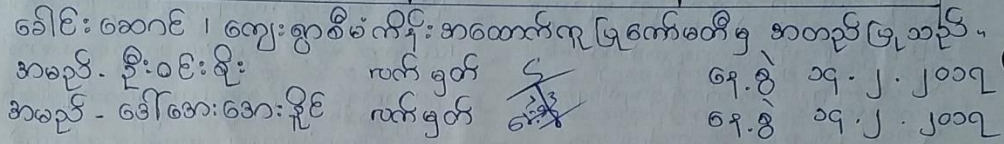 ခေါင်းဆောင် / ကျေးရွာစီမံကိန်းအထောက်အကူပြုကော်မတီမှ အတည်ပြုသည်။
အမည် - ဦးဝင်းစိုး လက်မှတ် နေ့စွဲ ၁၄.၂.၂၀၁၇
အမည် - ဒေါ်အေးအေးခိုင် လက်မှတ် နေ့စွဲ ၁၄.၂.၂၀၁၇